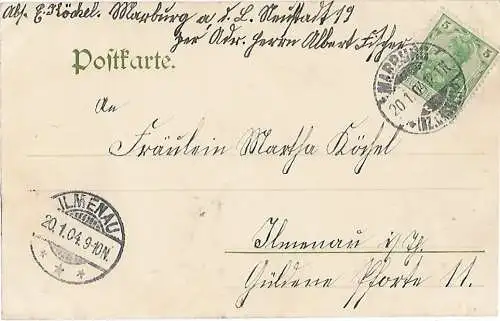 Abs. E. Köchel. Marburg a. d. L. Neustadt 19
per Adr. Herrn Albert Fischer
Postkarte.
5 5
MARBURG
20.1.04
(BZ. CASSEL)
An
Fräulein Martha Köchel
ILMENAU
20.1.04. 9-10N.
Ilmenau i/Th.
Güldene Pforte 11.